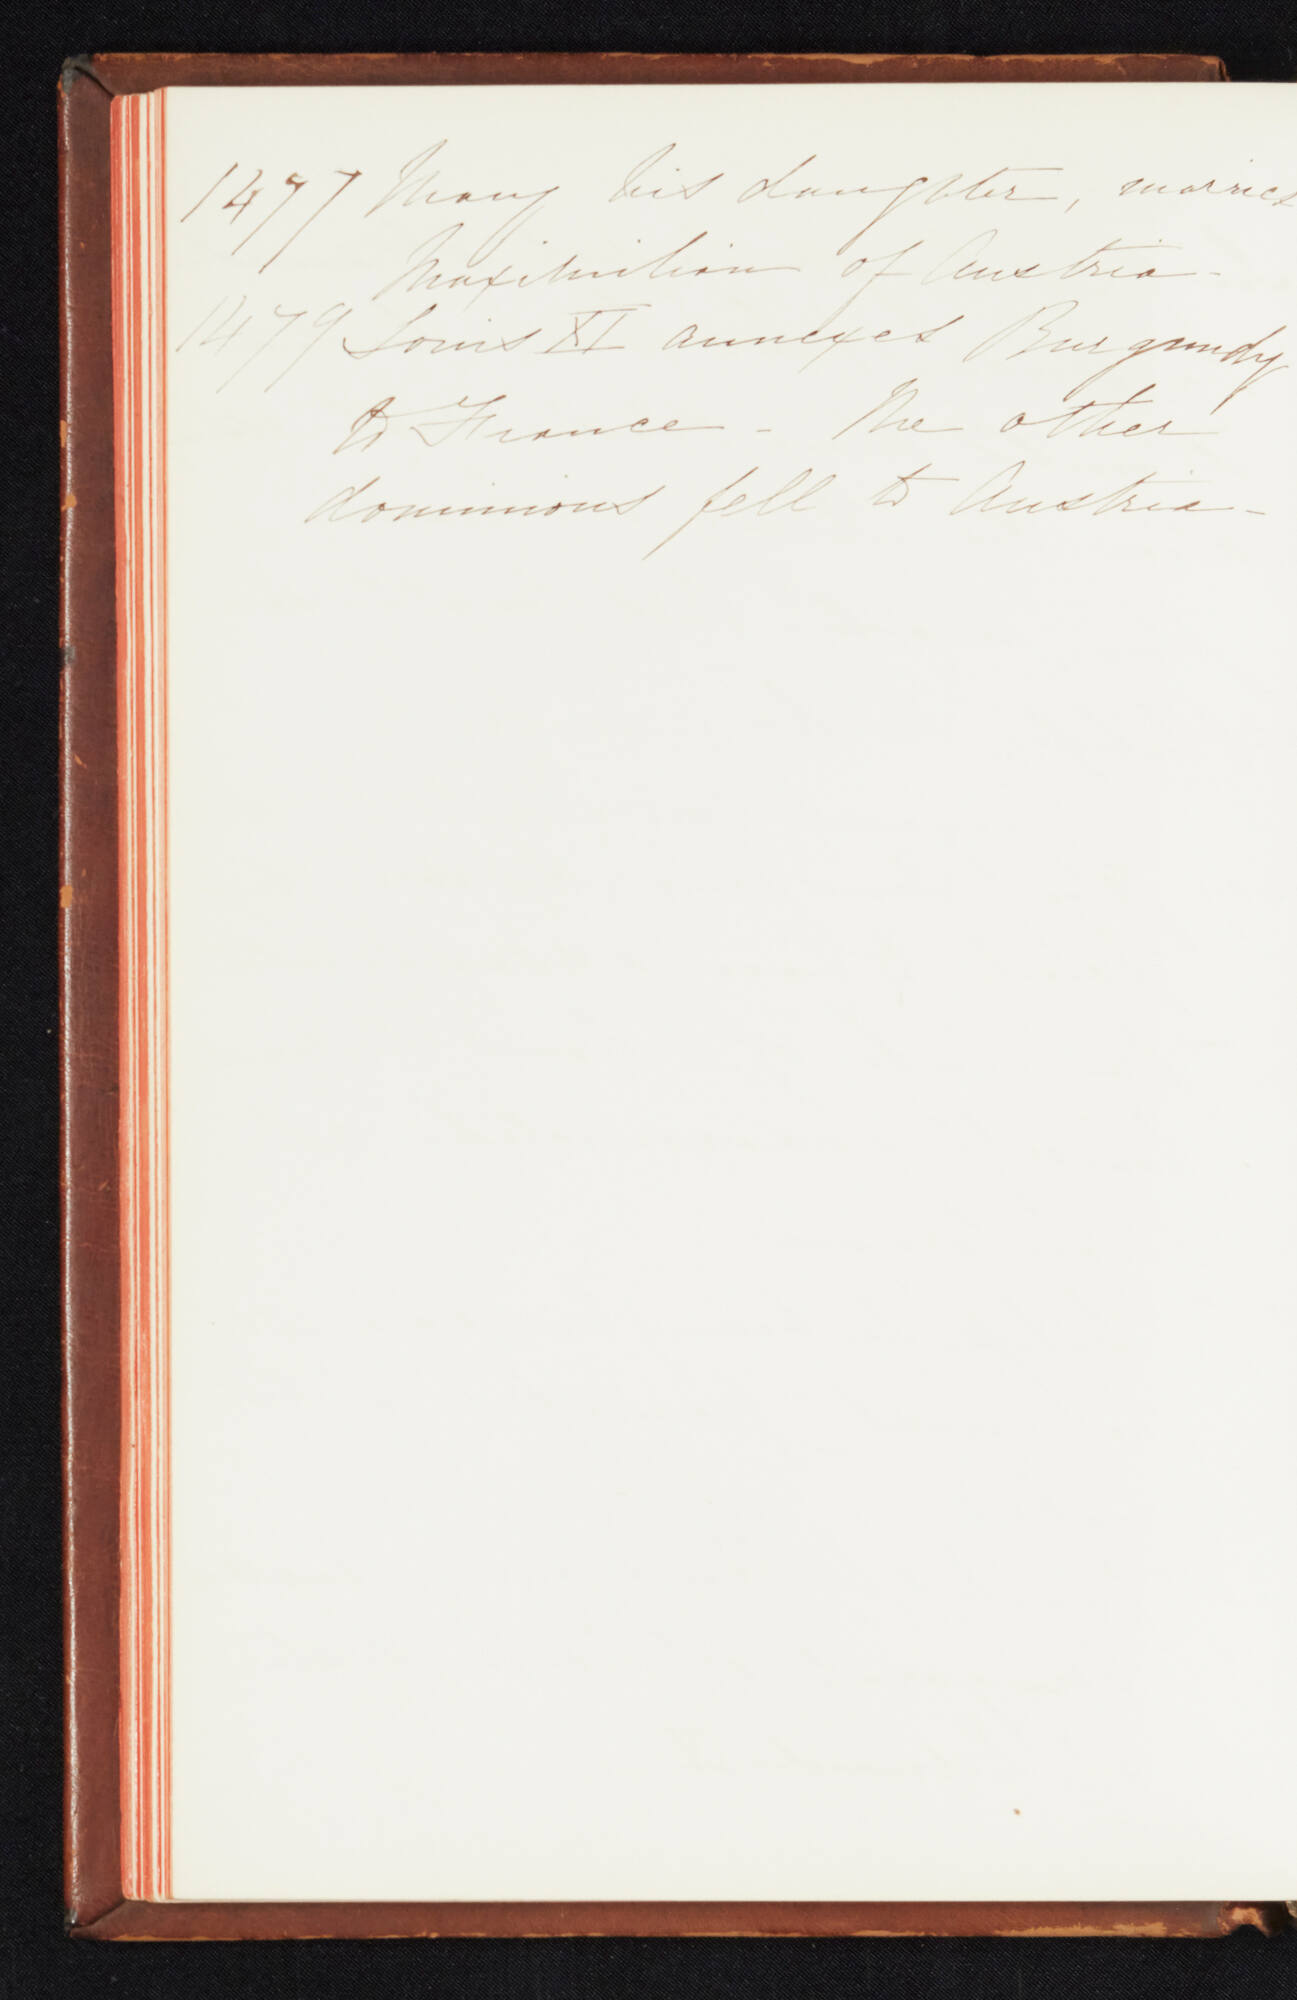 1477 Mary his daughter, marries
Maximilian of Austria -
1479 Louis XI annexes Burgundy
to France - The other
dominions fell to Austria -